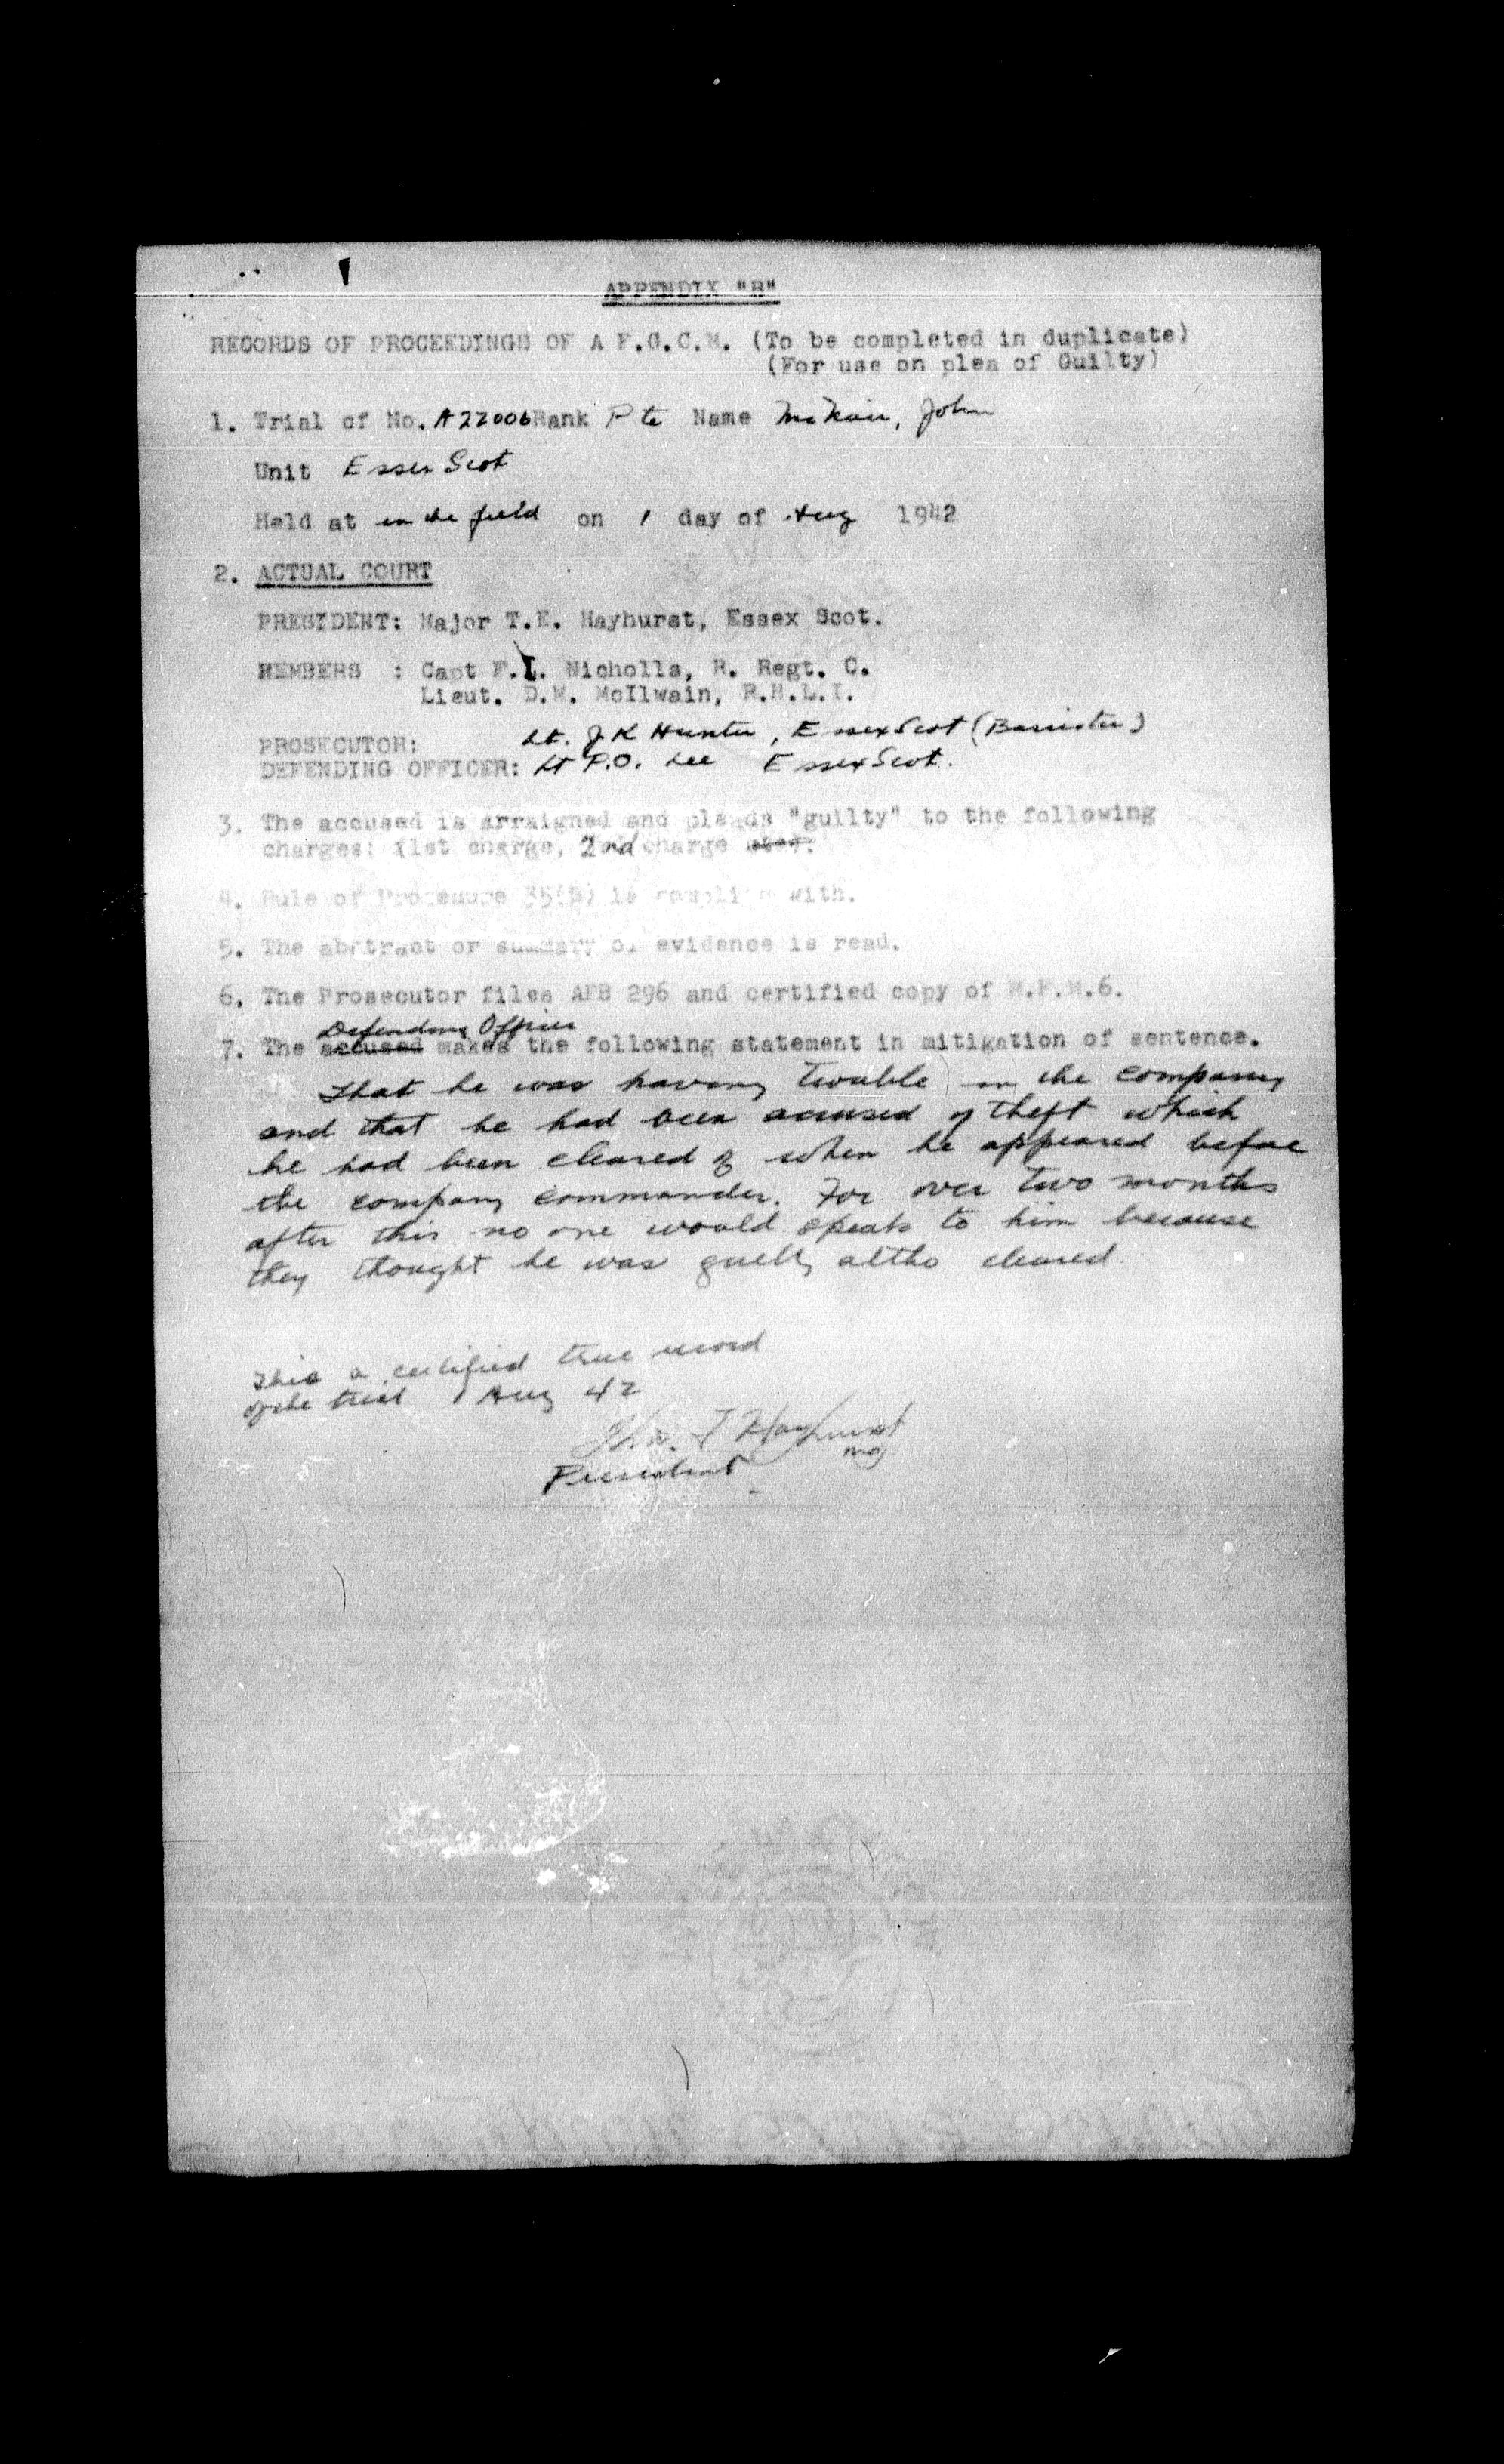 APPENDIX "B"
RECORDS OF PROCEEDINGS OF A F.G.C.M. (To be completed in duplicate)
(For use on plea of Guilty)
1. Trial of No. A22006 Rank Pte Name McNair, John
Unit Essex Scot
Held at in the field on 1 day of Aug 1942
2. ACTUAL COURT
PRESIDENT: Major T.E. Hayhurst, Essex Scot.
MEMBERS : Capt F.L. Nicholls, R. Regt. C.
Lieut. D.M. McIlwain, R.H.L.I.
PROSECUTOR: Lt. J K Hunter, Essex Scot (Barrister)
DEFENDING OFFICER: Lt P.O. Lee Essex Scot.
3. The accused is arraigned and pleads "guilty" to the following
charges: (1st charge, 2nd charge
4. Rule of Procedure 35(B) is complied with.
5. The abstract or summary of evidence is read.
6. The Prosecutor files AFB 296 and certified copy of M.F.M.6.
Defending Officer
7. The accused makes the following statement in mitigation of sentence.
That he was having trouble in the company
and that he had been accused of theft which
he had been cleared of when he appeared before
the company commander. For over two months
after this no one would speak to him because
they thought he was guilty altho cleared
This a certified true record
of the trial 1 Aug 42
Hayhurst
Maj
President